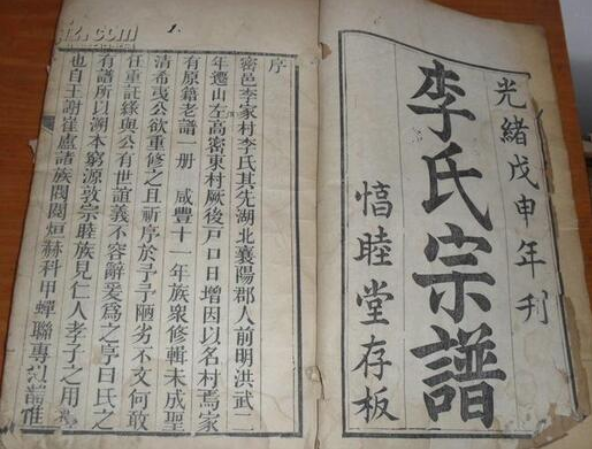 光緒戊申年刊
李氏宗譜
惇睦堂存板
序
密邑李家村李氏其先湖北襄陽郡人前明洪武二
年遷山左高密東村厥後戶口日增因以名村焉家
有原籍老譜一册 咸豐十一年族衆修輯未成聖
清希夷公欲重修之且祈序於予予陋劣不文何敢
任重託緣與公有世誼義不容辭爰爲之序曰氏之
有譜所以溯本窮源敦宗睦族見仁人孝子之用
也自王謝崔盧諸族閥閱烜赫科甲蟬聯專
1.
.com